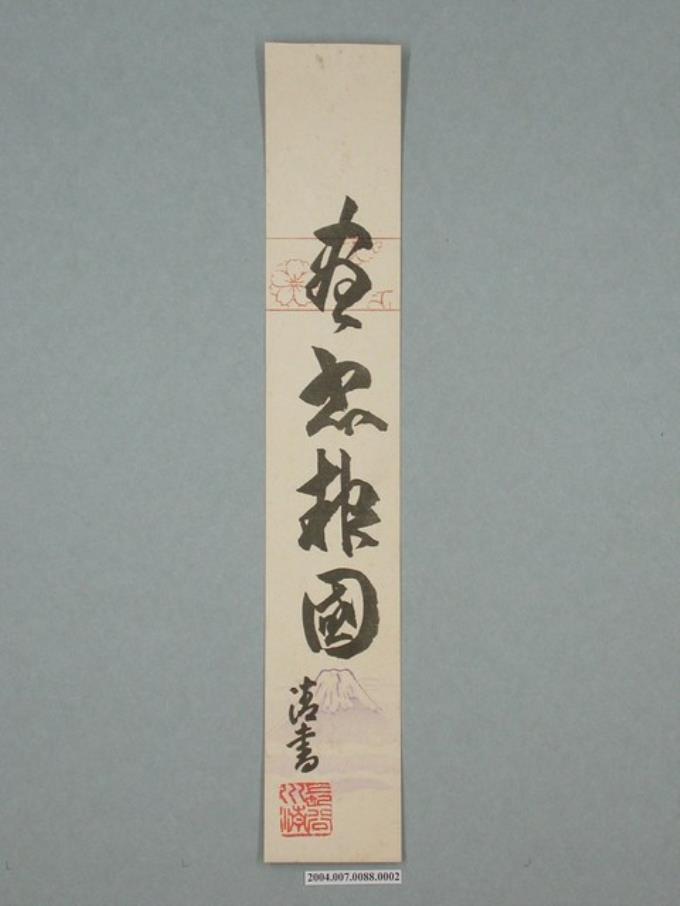 盡忠報國
清書
長谷川清
2004.007.0088.0002